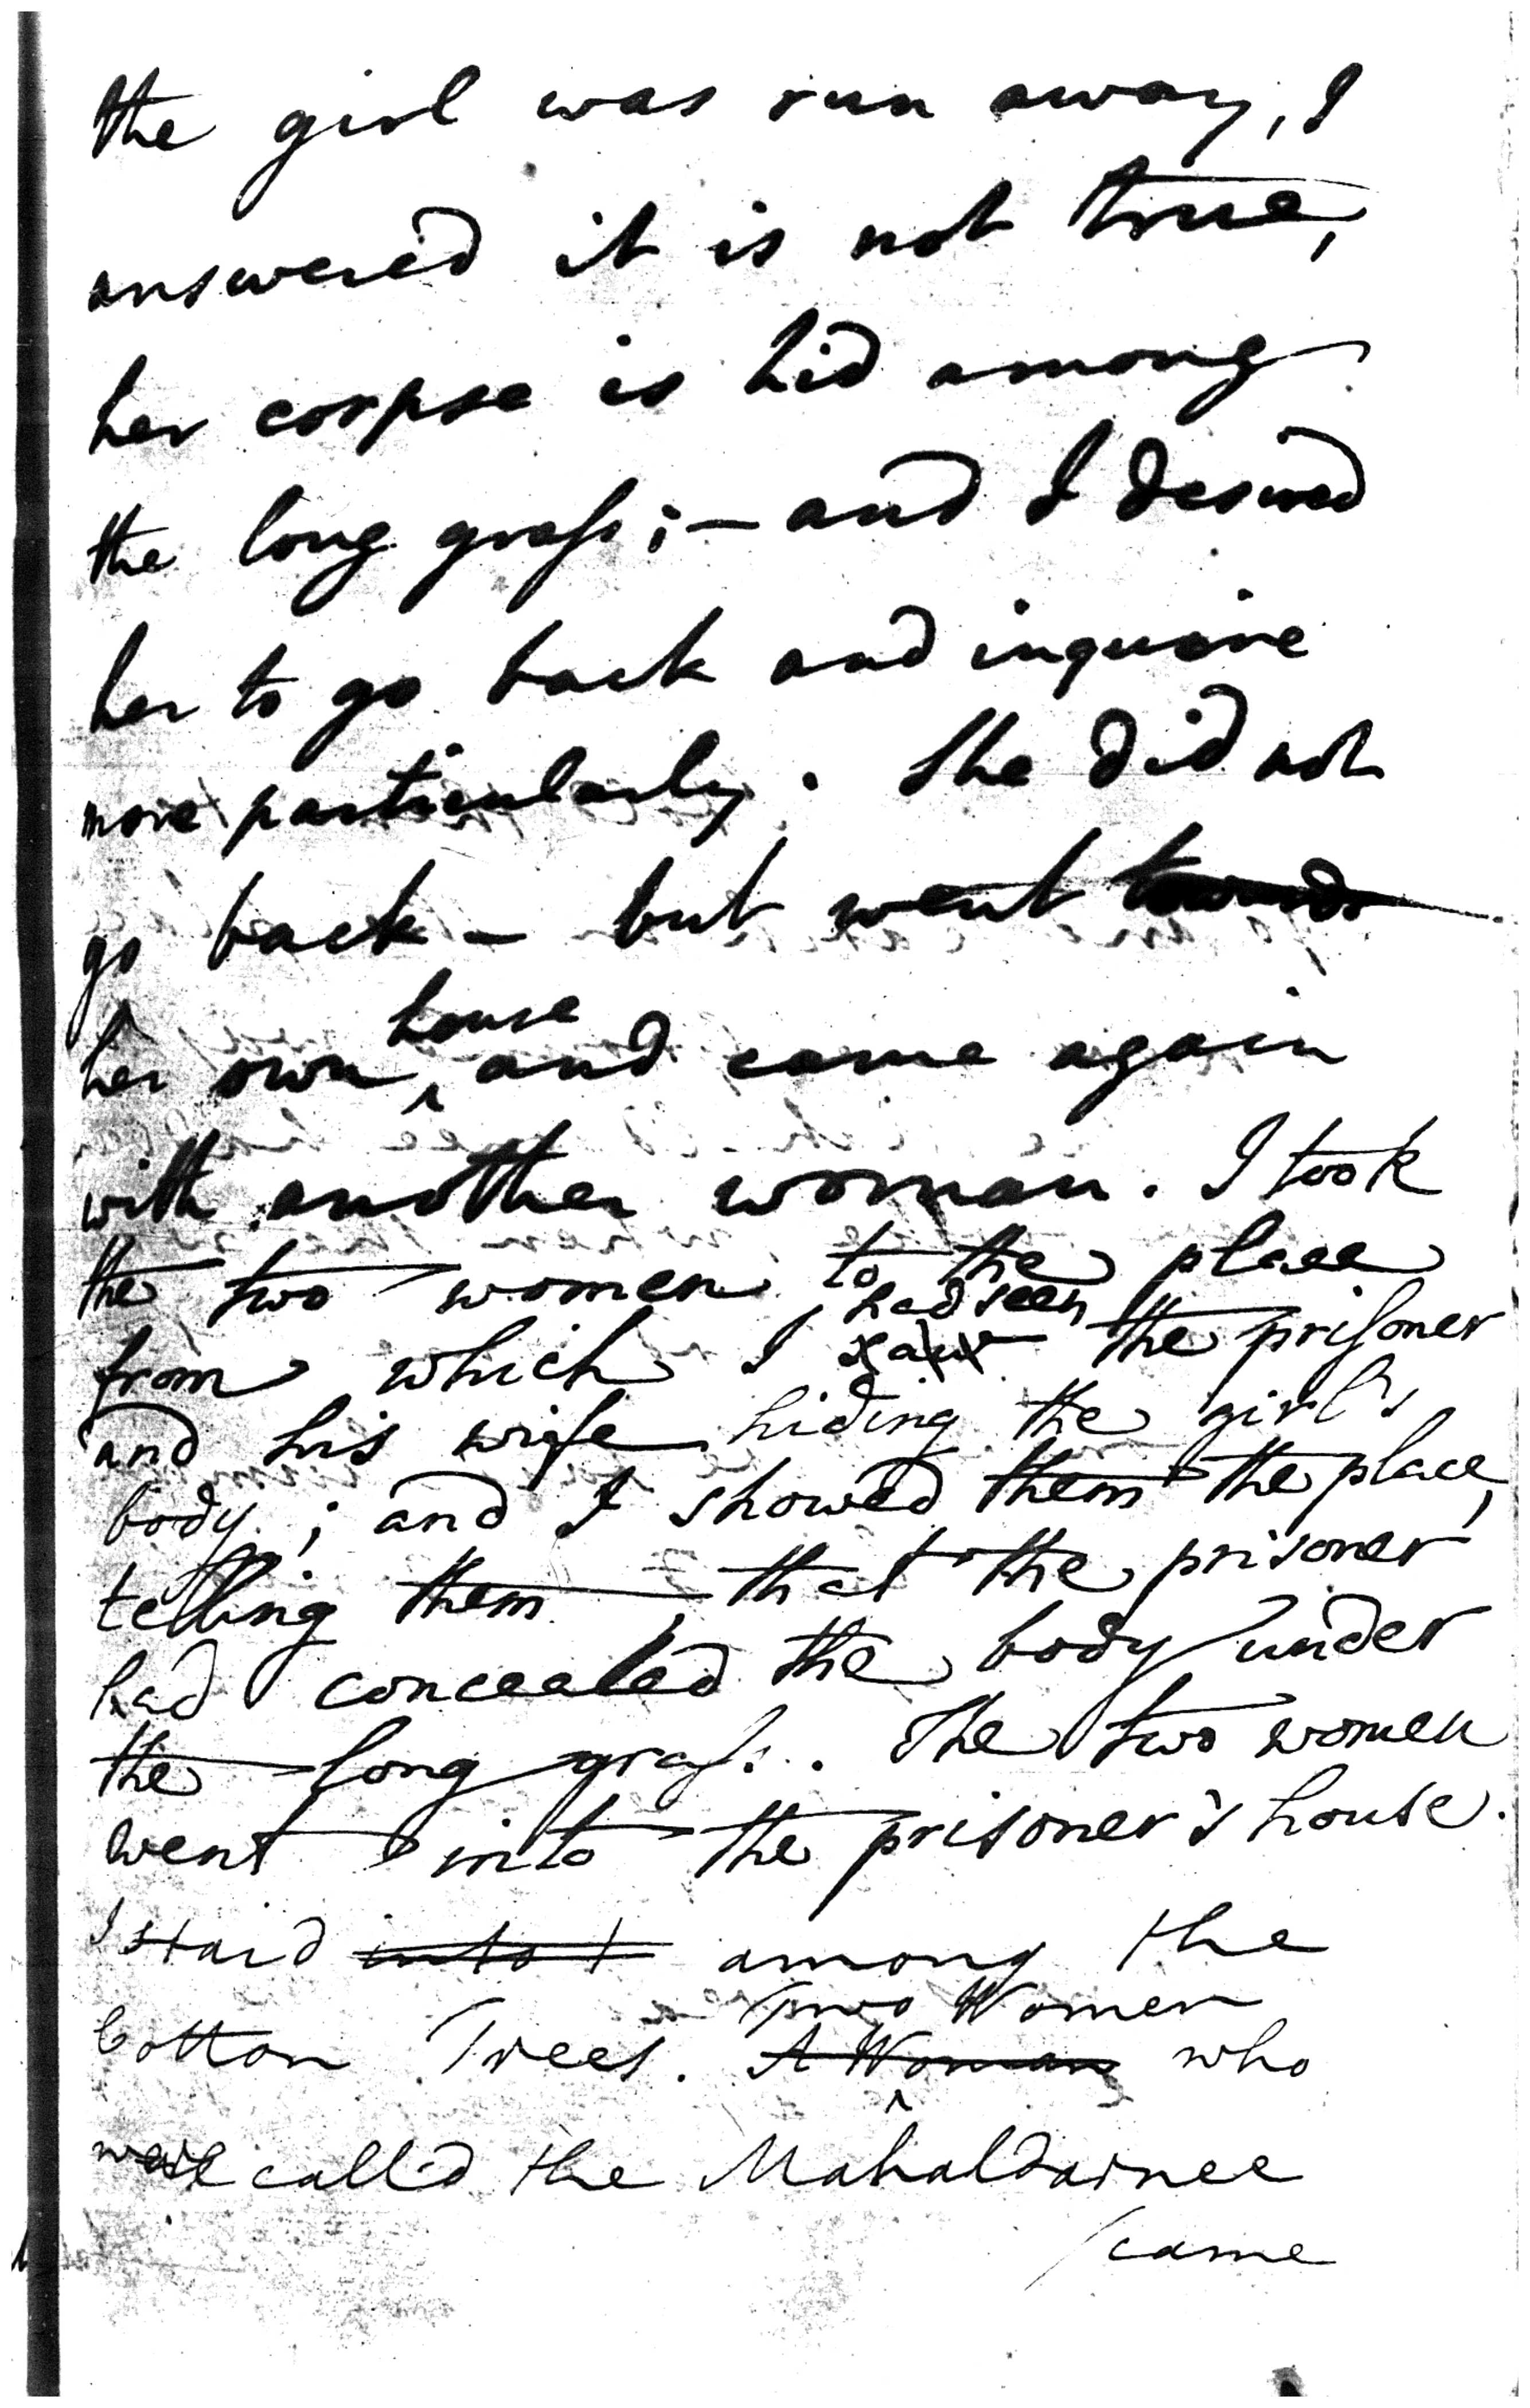 the girl was run away, I
answered it is not true,
her corpse is hid among
the long grass; – and I desired
her to go back and inquire
more particularly. She did not
go back – but went towards
house
her own ^ and came again
with another woman. I took
the two women to the place
had seen
from which I saw the prisoner
and his wife hiding the girl's
body; and I showed them the place,
telling them, that the prisoner
had concealed the body under
the long grass. The two women
went into the prisoner's house.
I staid into t among the
Two Women
Cotton Trees. A Woman ^ who
were called the Mahaldarnee
/came